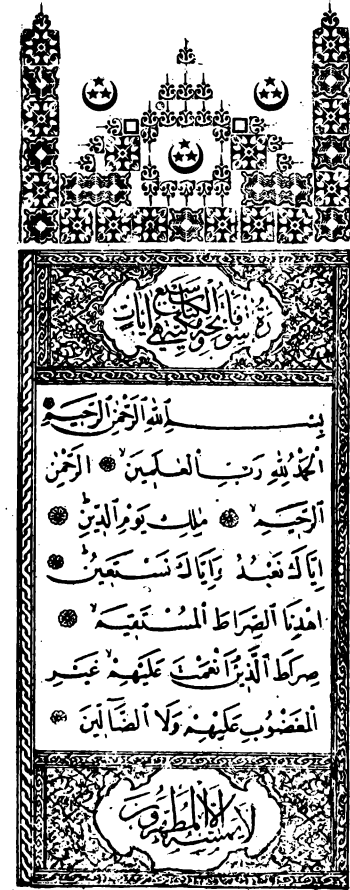 سورة فاتحة الكتاب مكية وهي سبع آيات
بِسْمِ ٱللهِ ٱلرَّحْمٰنِ ٱلرَّحِيمِ
اَلْحَمْدُ لِلّٰهِ رَبِّ ٱلْعٰلَمِينَ ۙ ٱلرَّحْمٰنِ
ٱلرَّحِيمِ ۙ مٰلِكِ يَوْمِ ٱلدِّينِ ۗ
اِيَّاكَ نَعْبُدُ وَاِيَّاكَ نَسْتَعِينُ ۗ
اهْدِنَا ٱلصِّرَاطَ ٱلْمُسْتَقِيمَ ۙ
صِرَاطَ ٱلَّذِينَ اَنْعَمْتَ عَلَيْهِمْ ۙ غَيْرِ
ٱلْمَغْضُوبِ عَلَيْهِمْ وَلَا ٱلضَّآلِّينَ
لا يمسه إلا المطهرون